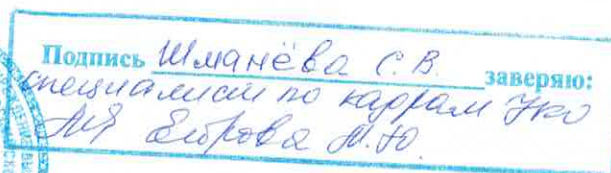 Подпись Шманёва С.В. заверяю:
специалист по кадрам УКО
М.Ю.